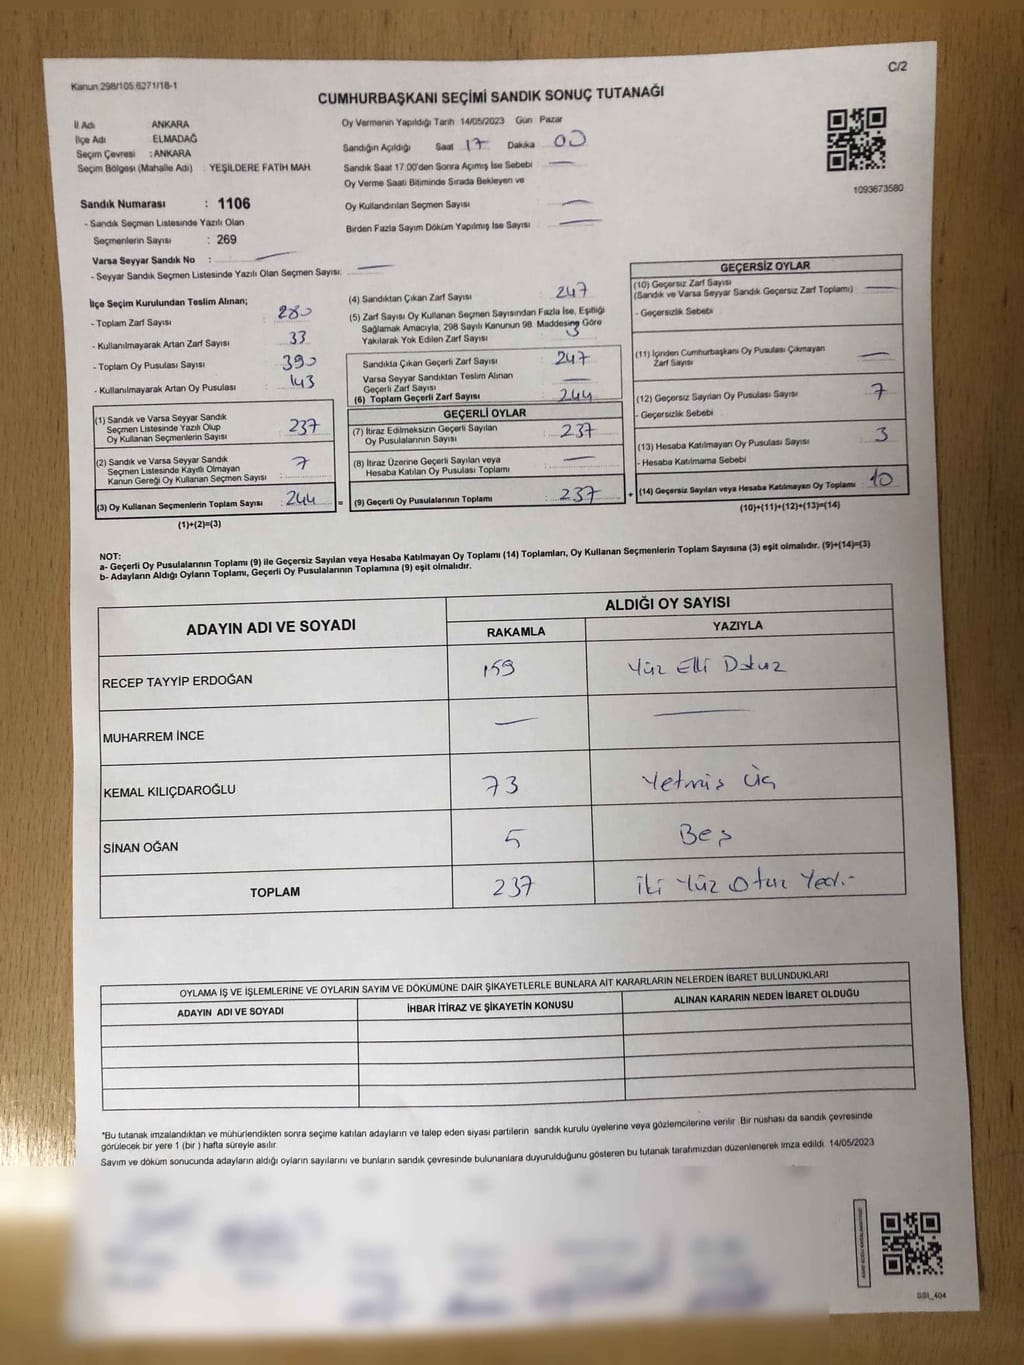 C/2
Kanun:298/105.6271/18-1
CUMHURBAŞKANI SEÇİMİ SANDIK SONUÇ TUTANAĞI
İl Adı ANKARA
İlçe Adı ELMADAĞ
Seçim Çevresi : ANKARA
Seçim Bölgesi (Mahalle Adı) : YEŞİLDERE FATİH MAH
Sandık Numarası : 1106
- Sandık Seçmen Listesinde Yazılı Olan
Seçmenlerin Sayısı : 269
Varsa Seyyar Sandık No : —
- Seyyar Sandık Seçmen Listesinde Yazılı Olan Seçmen Sayısı: —
Oy Vermenin Yapıldığı Tarih :14/05/2023 Gün Pazar
Sandığın Açıldığı Saat 17 Dakika 00
Sandık Saat 17.00'den Sonra Açımış İse Sebebi —
Oy Verme Saati Bitiminde Sırada Bekleyen ve
Oy Kullandırılan Seçmen Sayısı —
Birden Fazla Sayım Döküm Yapılmış İse Sayısı —
1093673580
İlçe Seçim Kurulundan Teslim Alınan;
- Toplam Zarf Sayısı : 280
- Kullanılmayarak Artan Zarf Sayısı : 33
- Toplam Oy Pusulası Sayısı : 390
- Kullanılmayarak Artan Oy Pusulası : 143
(1) Sandık ve Varsa Seyyar Sandık
Seçmen Listesinde Yazılı Olup
Oy Kullanan Seçmenlerin Sayısı : 237
(2) Sandık ve Varsa Seyyar Sandık
Seçmen Listesinde Kayıtlı Olmayan
Kanun Gereği Oy Kullanan Seçmen Sayısı : 7
(3) Oy Kullanan Seçmenlerin Toplam Sayısı : 244 =
(1)+(2)=(3)
(4) Sandıktan Çıkan Zarf Sayısı 247
(5) Zarf Sayısı Oy Kullanan Seçmen Sayısından Fazla İse, Eşitliği
Sağlamak Amacıyla, 298 Sayılı Kanunun 98. Maddesine Göre
Yakılarak Yok Edilen Zarf Sayısı : 3
Sandıkta Çıkan Geçerli Zarf Sayısı 247
Varsa Seyyar Sandıktan Teslim Alınan
Geçerli Zarf Sayısı —
(6) Toplam Geçerli Zarf Sayısı : 244
GEÇERLİ OYLAR
(7) İtiraz Edilmeksizin Geçerli Sayılan
Oy Pusulalarının Sayısı : 237
(8) İtiraz Üzerine Geçerli Sayılan veya
Hesaba Katılan Oy Pusulası Toplamı : —
(9) Geçerli Oy Pusulalarının Toplamı : 237 +
GEÇERSİZ OYLAR
(10) Geçersiz Zarf Sayısı
(Sandık ve Varsa Seyyar Sandık Geçersiz Zarf Toplamı) : —
- Geçersizlik Sebebi :
(11) İçinden Cumhurbaşkanı Oy Pusulası Çıkmayan
Zarf Sayısı : —
(12) Geçersiz Sayılan Oy Pusulası Sayısı : 7
- Geçersizlik Sebebi :
(13) Hesaba Katılmayan Oy Pusulası Sayısı : 3
- Hesaba Katılmama Sebebi :
(14) Geçersiz Sayılan veya Hesaba Katılmayan Oy Toplamı : 10
(10)+(11)+(12)+(13)=(14)
NOT:
a- Geçerli Oy Pusulalarının Toplamı (9) ile Geçersiz Sayılan veya Hesaba Katılmayan Oy Toplamı (14) Toplamları, Oy Kullanan Seçmenlerin Toplam Sayısına (3) eşit olmalıdır. (9)+(14)=(3)
b- Adayların Aldığı Oyların Toplamı, Geçerli Oy Pusulalarının Toplamına (9) eşit olmalıdır.
ADAYIN ADI VE SOYADI ALDIĞI OY SAYISI
RAKAMLA YAZIYLA
RECEP TAYYİP ERDOĞAN 159 Yüz Elli Dokuz
MUHARREM İNCE — —
KEMAL KILIÇDAROĞLU 73 Yetmiş Üç
SİNAN OĞAN 5 Beş
TOPLAM 237 İki Yüz Otuz Yedi
OYLAMA İŞ VE İŞLEMLERİNE VE OYLARIN SAYIM VE DÖKÜMÜNE DAİR ŞİKAYETLERLE BUNLARA AİT KARARLARIN NELERDEN İBARET BULUNDUKLARI
ADAYIN ADI VE SOYADI İHBAR İTİRAZ VE ŞİKAYETİN KONUSU ALINAN KARARIN NEDEN İBARET OLDUĞU
*Bu tutanak imzalandıktan ve mühürlendikten sonra seçime katılan adayların ve talep eden siyasi partilerin sandık kurulu üyelerine veya gözlemcilerine verilir. Bir nüshası da sandık çevresinde
görülecek bir yere 1 (bir ) hafta süreyle asılır.
Sayım ve döküm sonucunda adayların aldığı oyların sayılarını ve bunların sandık çevresinde bulunanlara duyurulduğunu gösteren bu tutanak tarafımızdan düzenlenerek imza edildi. 14/05/2023